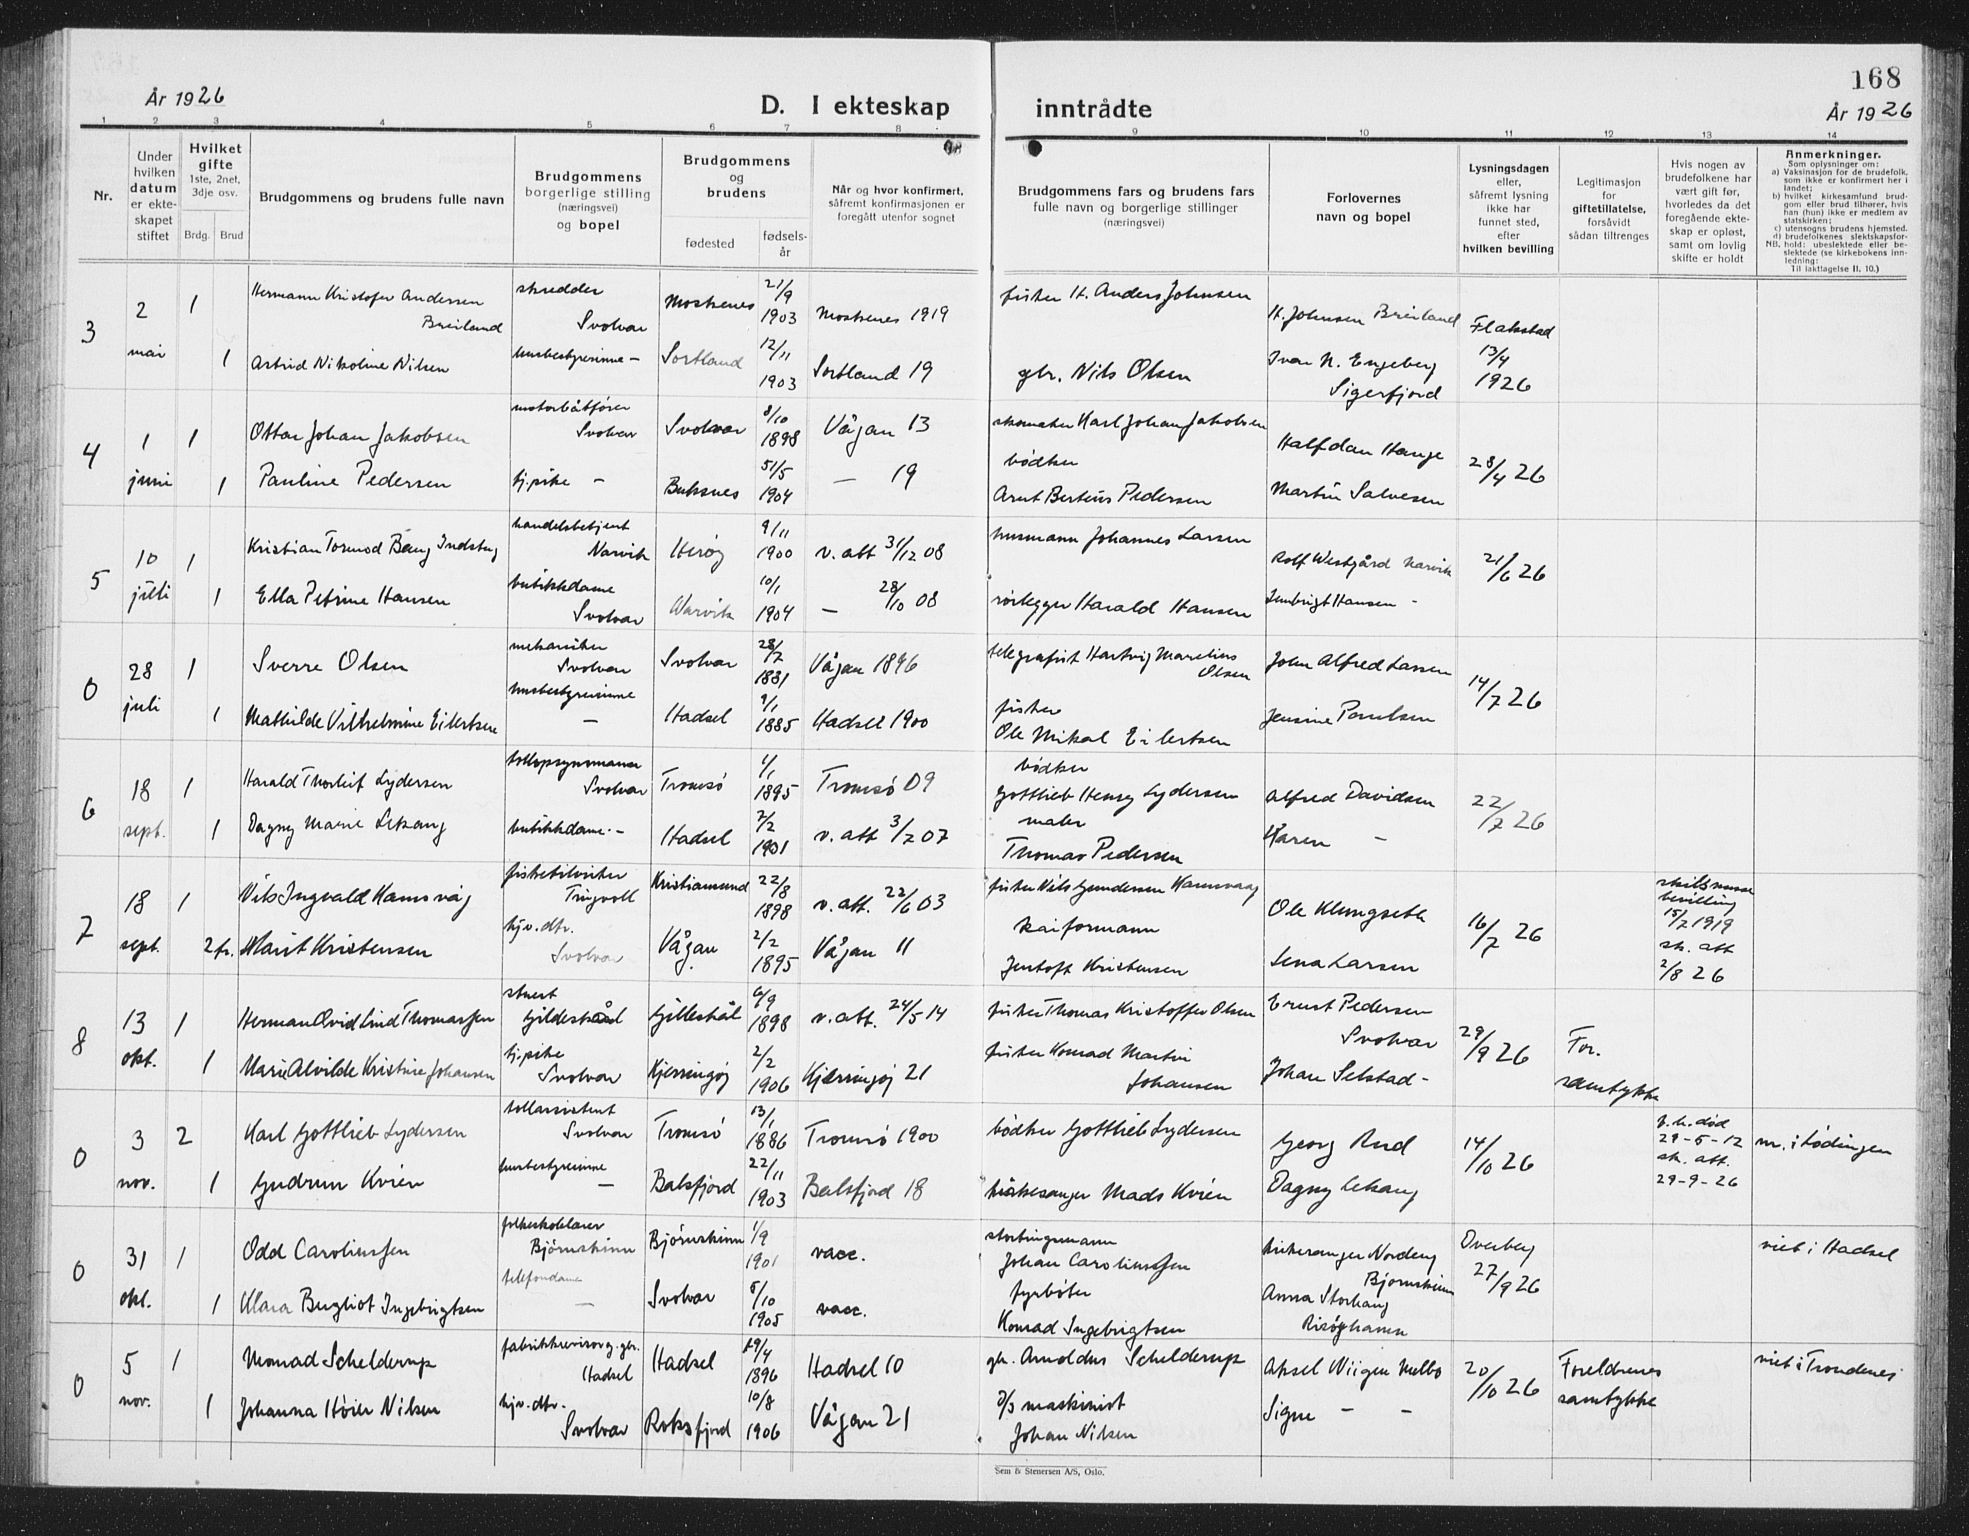 168
År 1926
D. I ekteskap
inntrådte
År 1926
1 2 3 4 5 6 7 8 9 10 11 12 13 14
Nr.
Under
hvilken
datum
er ekte-
skapet
stiftet
Hvilket
gifte
1ste, 2net,
3dje osv.
Brdg. Brud
Brudgommens og brudens fulle navn
Brudgommens
borgerlige stilling
(næringsvei)
og bopel
Brudgommens
og
brudens
fødested
fødsels-
år
Når og hvor konfirmert,
såfremt konfirmasjonen er
foregått utenfor sognet
Brudgommens fars og brudens fars
fulle navn og borgerlige stillinger
(næringsvei)
Forlovernes
navn og bopel
Lysningsdagen
eller,
såfremt lysning
ikke har
funnet sted,
efter
hvilken bevilling
Legitimasjon
for
giftetillatelse,
forsåvidt
sådan tiltrenges
Hvis nogen av
brudefolkene har
vært gift før,
hvorledes da det
foregående ekte-
skap er opløst,
samt om lovlig
skifte er holdt
Anmerkninger.
Som oplysninger om:
a) Vaksinasjon for de brudefolk,
som ikke er konfirmert her i
landet;
b) hvilket kirkesamfund brud-
gom eller brud tilhører, hvis
han (hun) ikke er medlem av
statskirken;
c) utensogns brudens hjemsted.
d) brudefolkenes slektskapsfor-
NB. hold: ubeslektede eller be-
slektede (se kirkebokens inn-
ledning:
Til iakttagelse II. 10.)
3 2 mai 1 Hermann Kristofer Andersen Breiland skredder Svolvær Moskenes 21/9 1903 Moskenes 1919 fisker H. Anders Johnsen H. Johnsen Breiland Flakstad 13/4 1926
1 Astrid Nikoline Nilsen husbestyrerinne — Sortland 12/11 1903 Sortland 19 gbr. Nils Olsen Ivar N. Engeberg Sigerfjord
4 1 juni 1 Ottar Johan Jakobsen motorbåtfører Svolvær Svolvær 8/10 1898 Vågan 13 skomaker Karl Johan Jakobsen Halfdan Hauge 28/4 26
1 Pauline Pedersen tj.pike — Buksnes 31/5 1904 — 19 bødker Arnt Berteus Pedersen Martin Salvesen
5 10 juli 1 Kristian Tormod Bang Indseth handelsbetjent Narvik Herøy 9/11 1900 v. att 31/12 08 husmann Johannes Larsen Rolf Westgård Narvik 21/6 26
1 Ella Petrine Hansen butikkdame Svolvær Narvik 10/1 1904 — 28/10 08 rørlegger Harald Hansen Hansen -
0 28 juli 1 Sverre Olsen mekaniker Svolvær Svolvær 28/7 1881 Vågan 1896 telegrafist Hartvig Marelius Olsen John Alfred Larsen 14/7 26
1 Mathilde Vilhelmine Eilertsen husbestyrerinne — Hadsel 9/1 1885 Hadsel 1900 fisker Ole Mikal Eilertsen Jensine Paulsen
6 18 sept. 1 Harald Thorleif Lydersen tollopsynsmann Svolvær Tromsø 1/1 1895 Tromsø 09 bødker Gottlieb Henry Lydersen Alfred Davidsen 22/7 26
1 Dagny Marie Lekang butikkdame — Hadsel 2/2 1901 v. att 3/7 07 maler Thomas Pedersen Karen —
7 18 sept. 1 Nils Ingvald Hamsvåg fisketilvirker Tingvoll Kristiansund 22/8 1898 v. att. 22/6 03 fisker Nils Gundersen Hamsvaag Ole Klungseth 16/7 26 skilsmisse bevilling 15/7 1919 sk. att 2/8 26
2 fr. Marit Kristensen hjv. dtr. Svolvær Vågan 2/2 1895 Vågan 11 kaiformann Jentoft Kristensen Lena Larsen
8 13 okt. 1 Herman Ovid Lind Thomassen stuert Gildeskål Gilleskål 6/9 1898 v. att. 24/5 14 fisker Thomas Kristoffer Olsen Ernst Pedersen Svolvær 29/9 26 For. samtykke
1 Marie Alvilde Kristine Johansen tj.pike Svolvær Kjerringøj 2/2 1906 Kjærringøj 21 fisker Konrad Martin Johansen Johan Selstad -
0 3 nov. 2 Karl Gottlieb Lydersen tollassistent Svolvær Tromsø 13/1 1886 Tromsø 1900 bødker Gottlieb Lydersen Georg Rud 14/10 26 f. h. død 29-5-12 sk. att. 29-9-26 m. i Lødingen
1 Gudrun Kvien husbestyrerinne — Balsfjord 22/11 1903 Balsfjord 18 kirkesanger Mads Kvien Dagny Lekang
0 31 okt. 1 Odd Caroliussen folkeskolelærer Bjørnskinn Bjørnskinn 1/9 1901 vacc. stortingsmann Johan Caroliussen kirkesanger Norderg Bjørnskinn Overberg 27/9 26 viet i Hadsel
1 Klara Bergliot Ingebrigtsen telefondame — Svolvær 8/10 1905 vacc. fyrbøter Konrad Ingebrigtsen Anna Storhaug Risøyhamn
0 5 nov. 1 Monrad Schelderup fabrikkrevisor g. gbr. Hadsel Hadsel 29/4 1896 Hadsel 10 gbr. Arnoldus Schelderup Aksel Wiigen Melbo 20/10 26 Foreldrenes samtykke viet i Trondenes
1 Johanna Høier Nilsen hjv. dtr. Svolvær Roksfjord 10/8 1906 Vågan 21 D/S maskinist Johan Nilsen Signe — —
Sem & Stenersen A/S, Oslo.